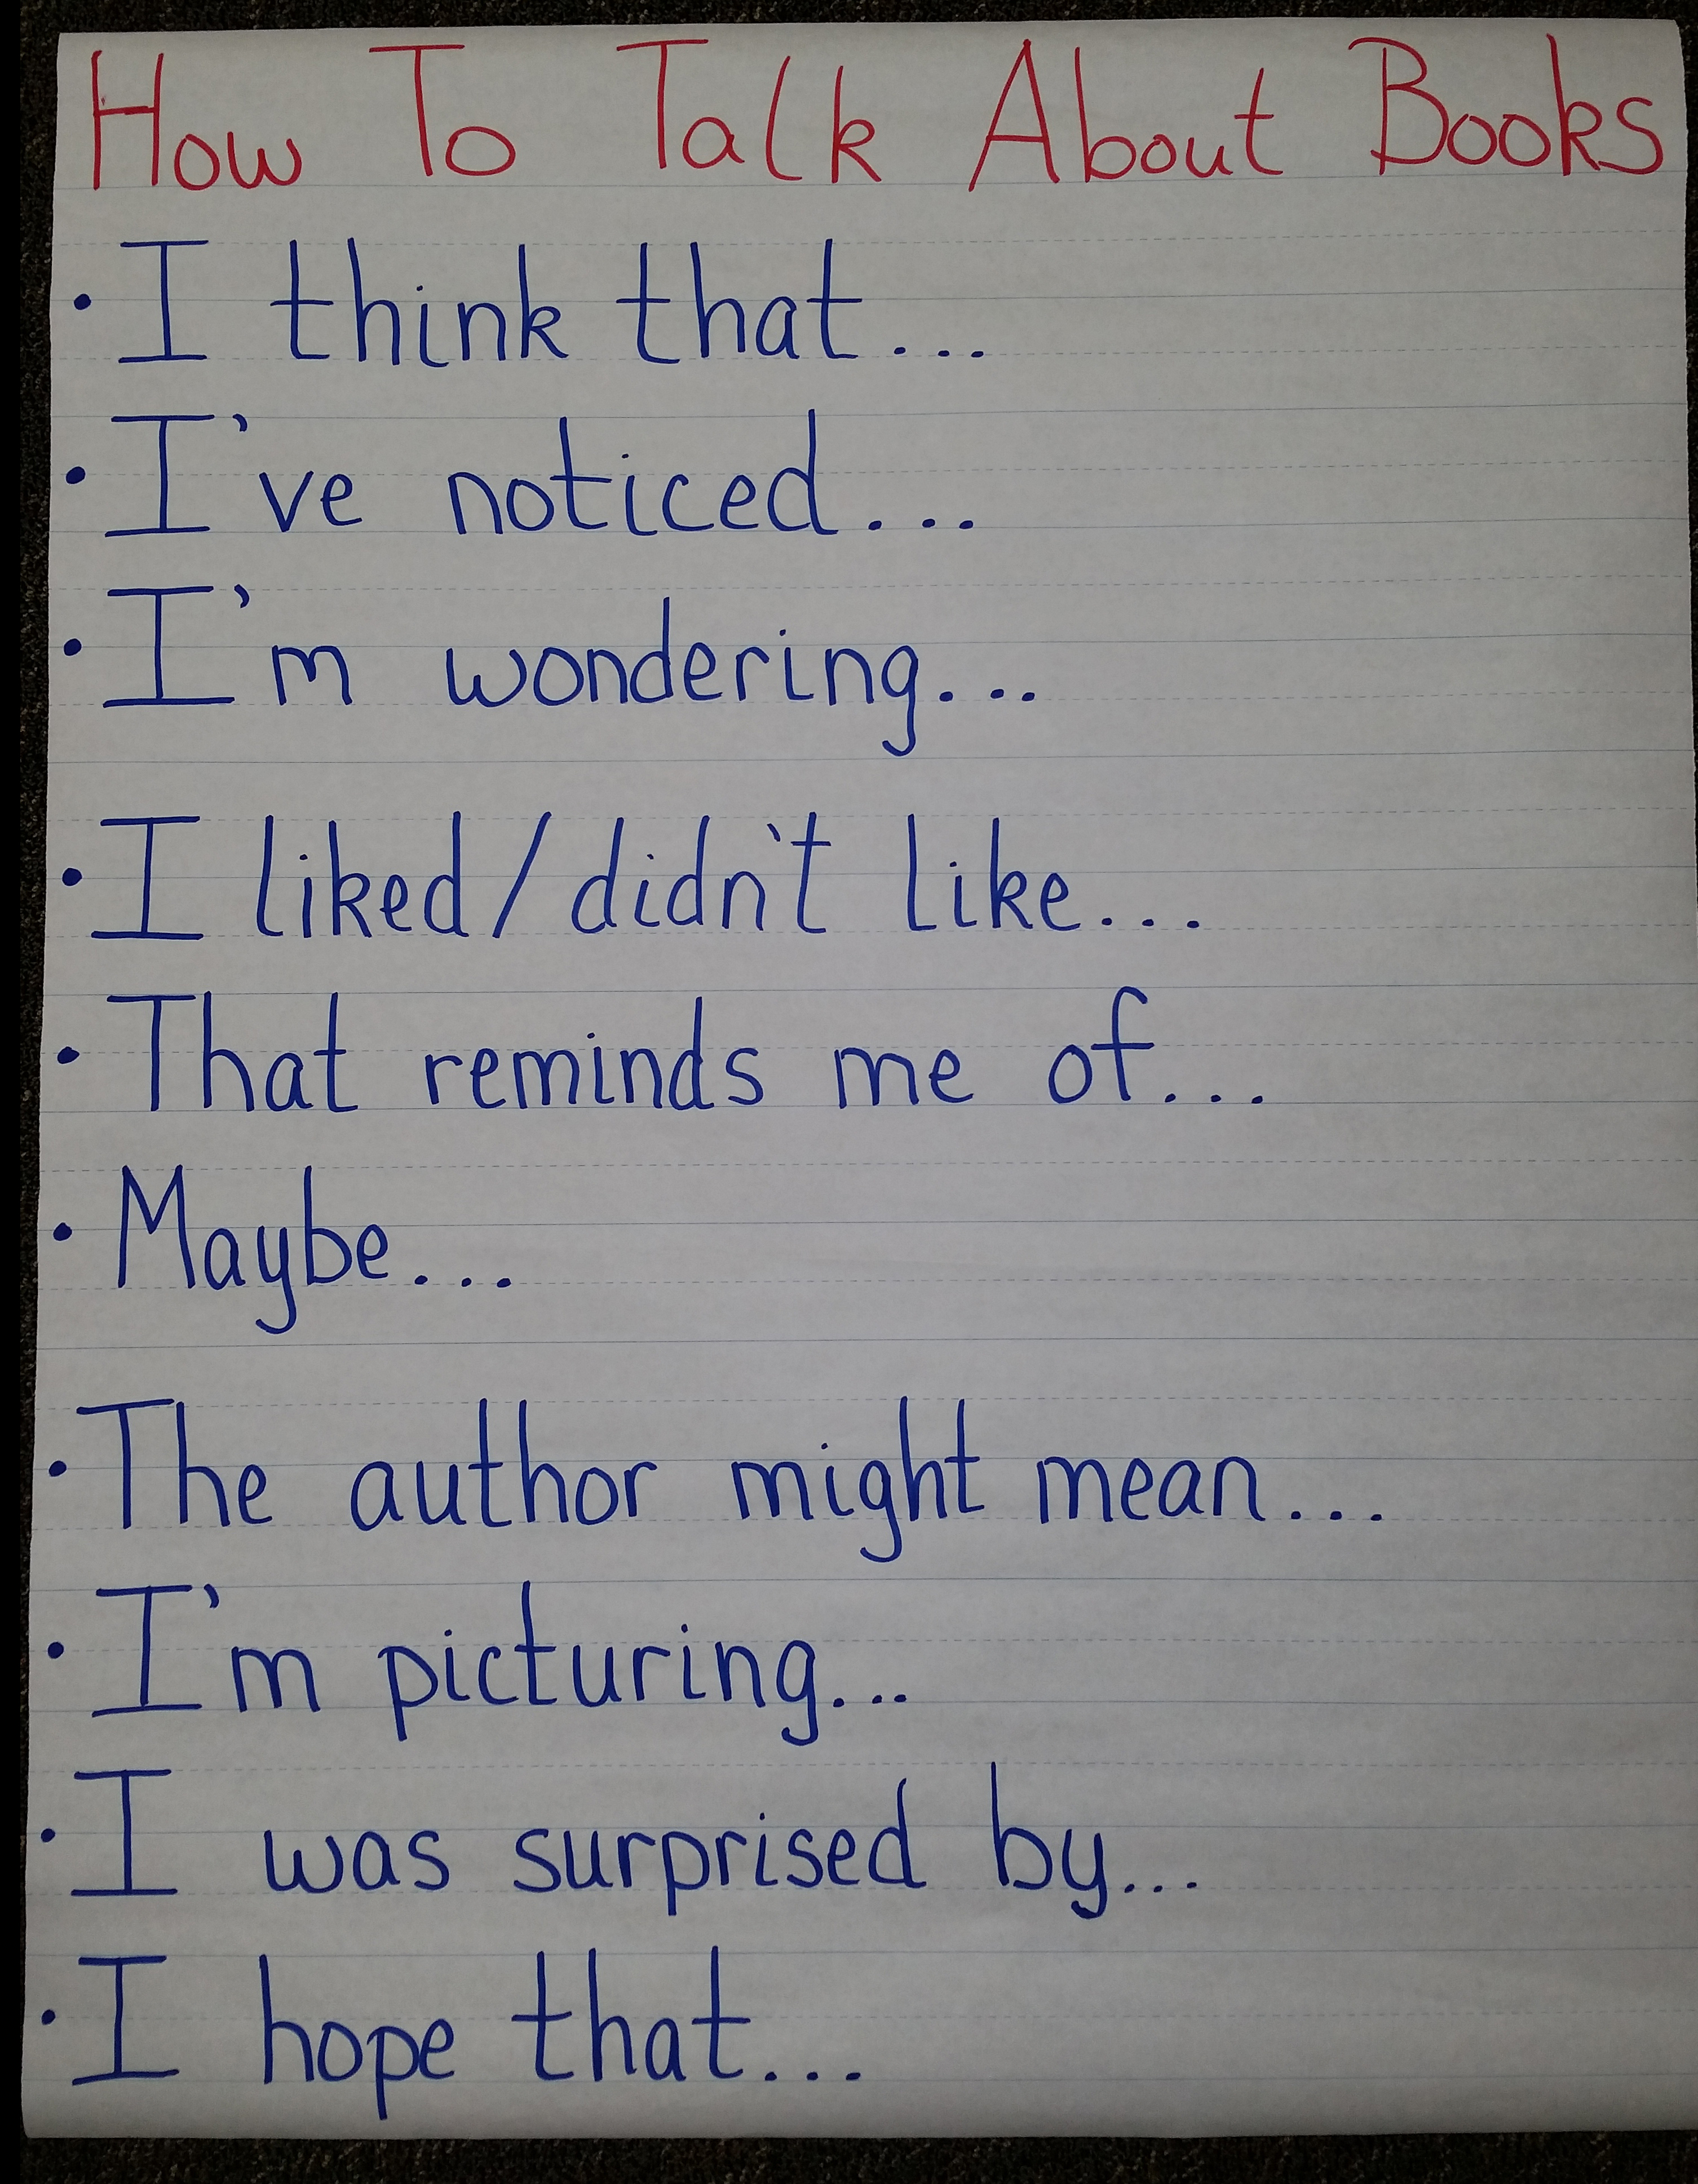 How To Talk About Books
• I think that...
• I've noticed...
• I'm wondering...
• I liked/didn't like...
• That reminds me of...
• Maybe...
• The author might mean...
• I'm picturing...
• I was surprised by...
• I hope that...